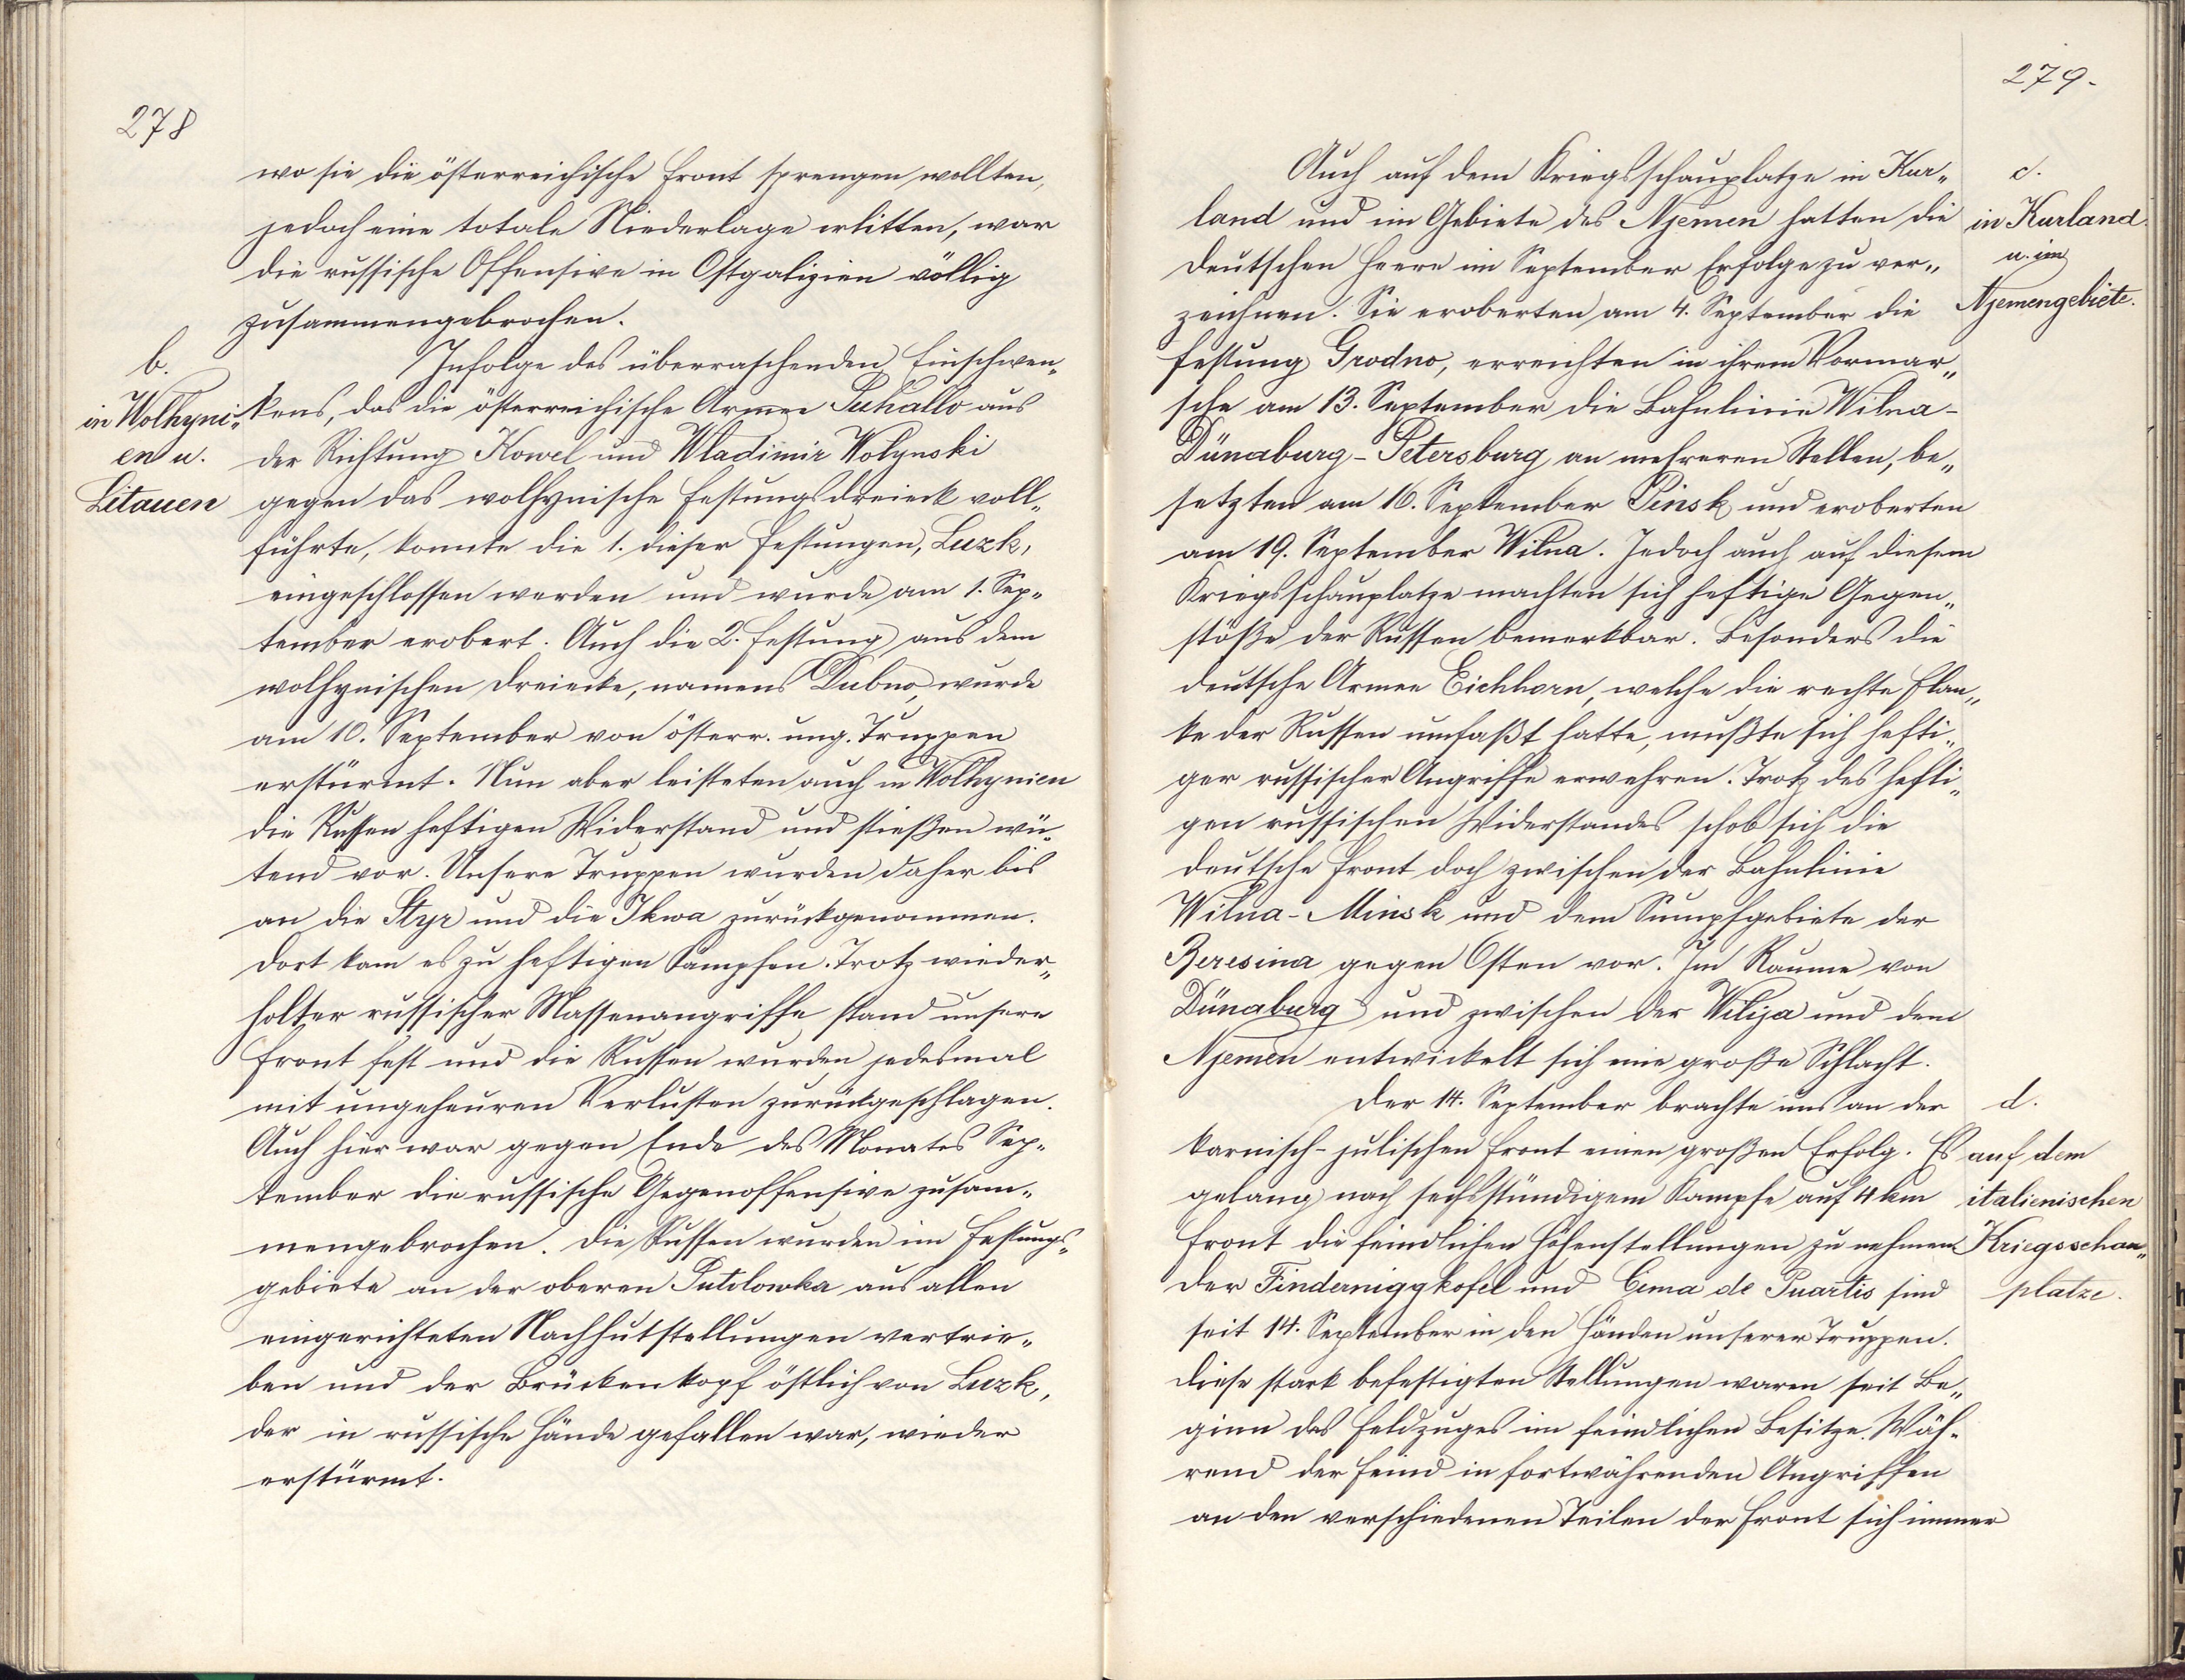 278
wo sie die österreichische Front sprengen wollten,
jedoch eine totale Niederlage erlitten, war
die russische Offensive in Ostgalizien völlig
zusammengebrochen.
b.
in Wolhyni„
en u.
Litauen
Infolge des überraschenden Einschwen„
kens, das die österreichische Armee Puhallo aus
der Richtung Kowel und Wladimir Wolynski
gegen das wolhynische Festungsdreieck voll„
führte, konnte die 1. dieser Festungen, Luzk,
eingeschlossen werden und wurde am 1. Sep„
tember erobert. Auch die 2. Festung aus dem
wolhynischen Dreiecke, namens Dubno, wurde
am 10. September von österr. ung. Truppen
erstürmt. Nun aber leisteten auch in Wolhynien
die Russen heftigen Widerstand und stießen wü„
tend vor. Unsere Truppen wurden daher bis
an die Styr und die Ikwa zurückgenommen.
Dort kam es zu heftigen Kämpfen. Trotz wieder„
holter russischer Massenangriffe stand unsere
Front fest und die Russen wurden jedesmal
mit ungeheuren Verlusten zurückgeschlagen.
Auch hier war gegen Ende des Monates Sep„
tember die russische Gegenoffensive zusam„
mengebrochen. Die Russen wurden im Festungs„
gebiete an der oberen Putilowka aus allen
eingerichteten Nachhutstellungen vertrie„
ben und der Brückenkopf östlich von Luzk,
der in russische Hände gefallen war, wieder
erstürmt.
279.
c.
in Kurland
u. im
Njemengebiete.
Auch auf dem Kriegsschauplatze in Kur„
land und im Gebiete des Njemen hatten die
deutschen Heere im September Erfolge zu ver„
zeichnen. Sie eroberten am 4. September die
Festung Grodno, erreichten in ihrem Vormar„
sche am 13. September die Bahnlinie Wilna-
Dünaburg-Petersburg an mehreren Stellen, be„
setzten am 16. September Pinsk und eroberten
am 19. September Wilna. Jedoch auch auf diesem
Kriegsschauplatze machten sich heftige Gegen„
stöße der Russen bemerkbar. Besonders die
deutsche Armee Eichhorn, welche die rechte Flan„
ke der Russen umfaßt hatte, mußte sich hefti„
ger russischer Angriffe erwehren. Trotz des hefti„
gen russischen Widerstandes schob sich die
deutsche Front doch zwischen der Bahnlinie
Wilna-Minsk und dem Sumpfgebiete der
Beresina gegen Osten vor. Im Raume von
Dünaburg und zwischen der Wilija und dem
Njemen entwickelt sich eine große Schlacht.
d.
auf dem
italienischen
Kriegsschau„
platze.
Der 14. September brachte uns an der
karnisch-julischen Front einen großen Erfolg. Es
gelang nach sechsstündigem Kampfe auf 4 km
Front die feindlichen Höhenstellungen zu nehmen.
Der Findeniggkofel und Cima de Puartis sind
seit 14. September in den Händen unserer Truppen.
Diese stark befestigten Stellungen waren seit Be„
ginn des Feldzuges im feindlichen Besitze. Wäh„
rend der Feind in fortwährenden Angriffen
an den verschiedenen Teilen der Front sich immer